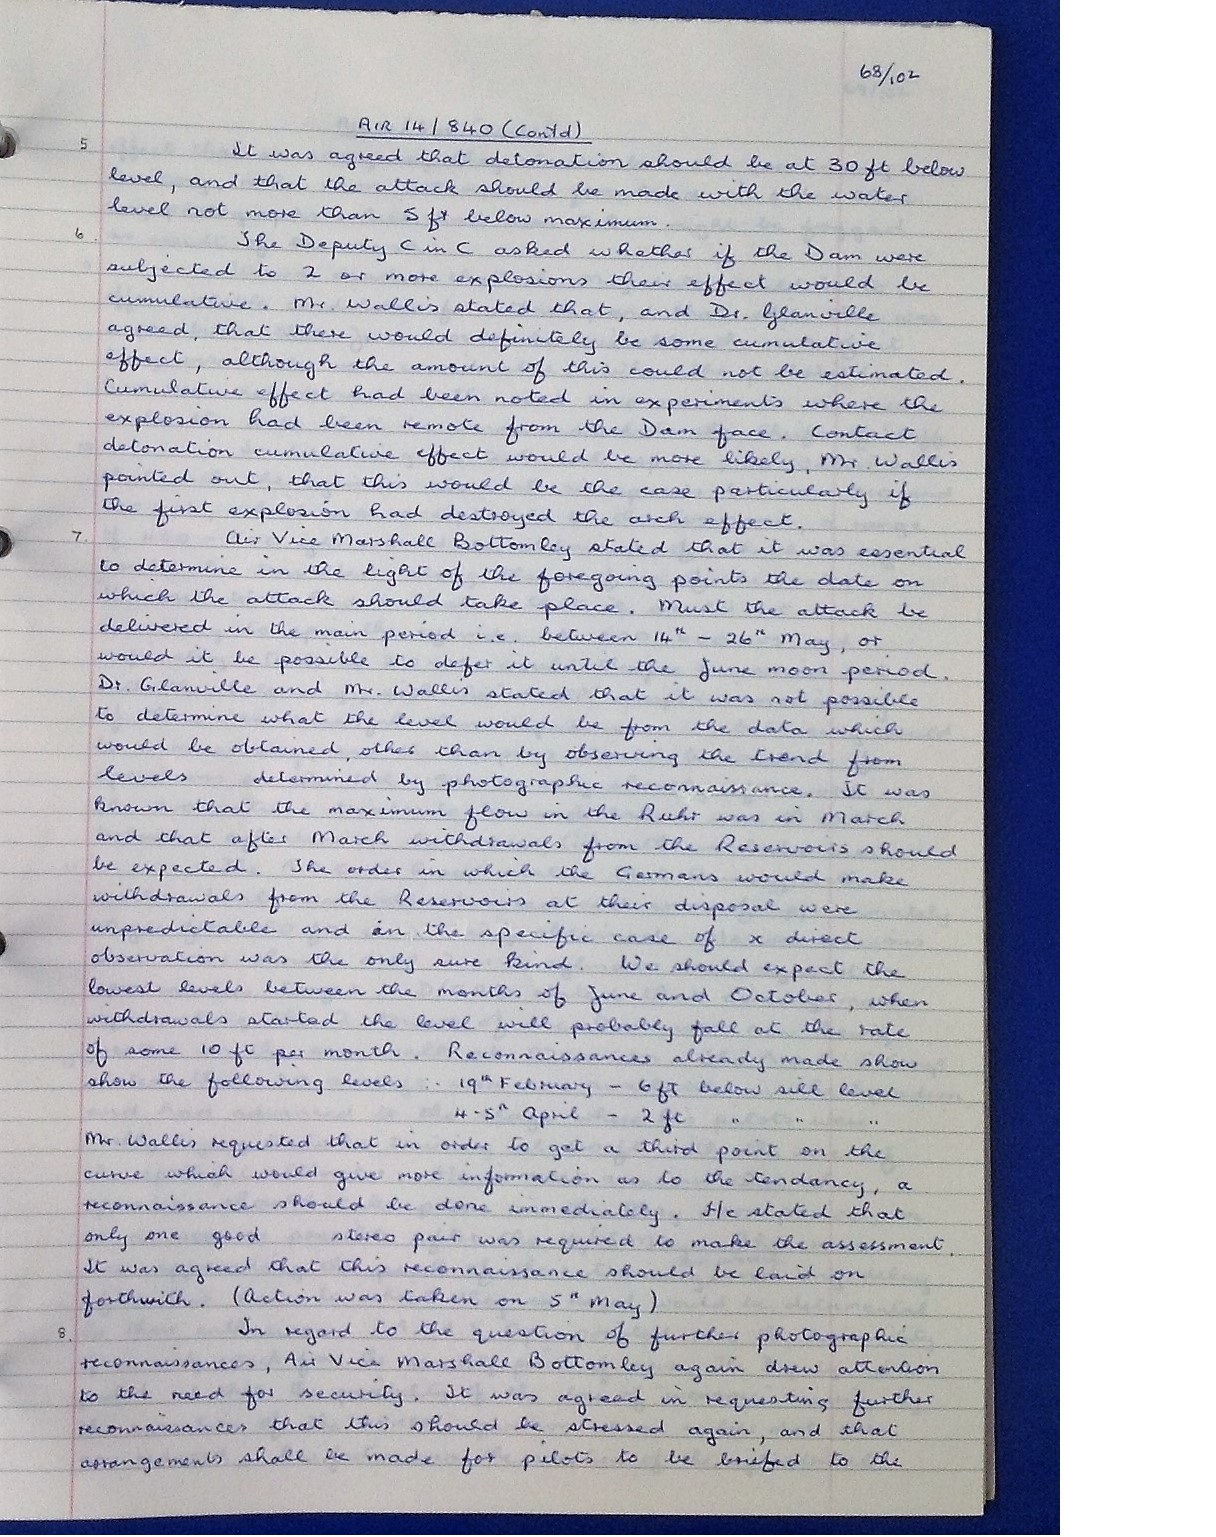 68/102
AIR 14/840 (Cont'd)
5 It was agreed that detonation should be at 30 ft below
level, and that the attack should be made with the water
level not more than 5 ft below maximum.
6. The Deputy C in C asked whether if the Dam were
subjected to 2 or more explosions their effect would be
cumulative. Mr. Wallis stated that, and Dr. Glanville
agreed, that there would definitely be some cumulative
effect, although the amount of this could not be estimated.
Cumulative effect had been noted in experiments where the
explosion had been remote from the Dam face. Contact
detonation cumulative effect would be more likely, Mr Wallis
pointed out, that this would be the case particularly if
the first explosion had destroyed the arch effect.
7. Air Vice Marshall Bottomley stated that it was essential
to determine in the light of the foregoing points the date on
which the attack should take place. Must the attack be
delivered in the main period i.e. between 14th - 26th May, or
would it be possible to defer it until the June moon period.
Dr. Glanville and Mr. Wallis stated that it was not possible
to determine what the level would be from the data which
would be obtained, other than by observing the trend from
levels determined by photographic reconnaissance. It was
known that the maximum flow in the Ruhr was in March
and that after March withdrawals from the Reservoirs should
be expected. The order in which the Germans would make
withdrawals from the Reservoirs at their disposal were
unpredictable and in the specific case of x direct
observation was the only sure kind. We should expect the
lowest levels between the months of June and October, when
withdrawals started the level will probably fall at the rate
of some 10 ft per month. Reconnaissances already made show
show the following levels :- 19th February - 6 ft below sill level
4-5th April - 2 ft " " "
Mr. Wallis requested that in order to get a third point on the
curve which would give more information as to the tendancy, a
reconnaissance should be done immediately. He stated that
only one good stereo pair was required to make the assessment.
It was agreed that this reconnaissance should be laid on
forthwith. (Action was taken on 5th May)
8. In regard to the question of further photographic
reconnaissances, Air Vice Marshall Bottomley again drew attention
to the need for security. It was agreed in requesting further
reconnaissances that this should be stressed again, and that
arrangements shall be made for pilots to be briefed to the